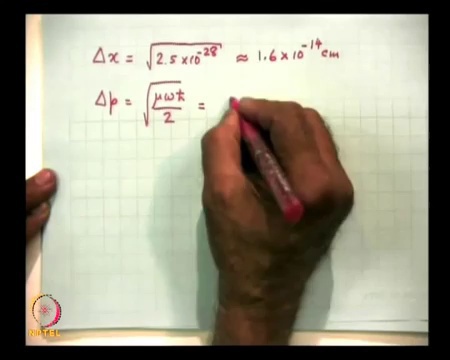 Δx = √2.5×10⁻²⁸ ≈ 1.6×10⁻¹⁴ cm
Δp = √(μωħ/2) =
NPTEL